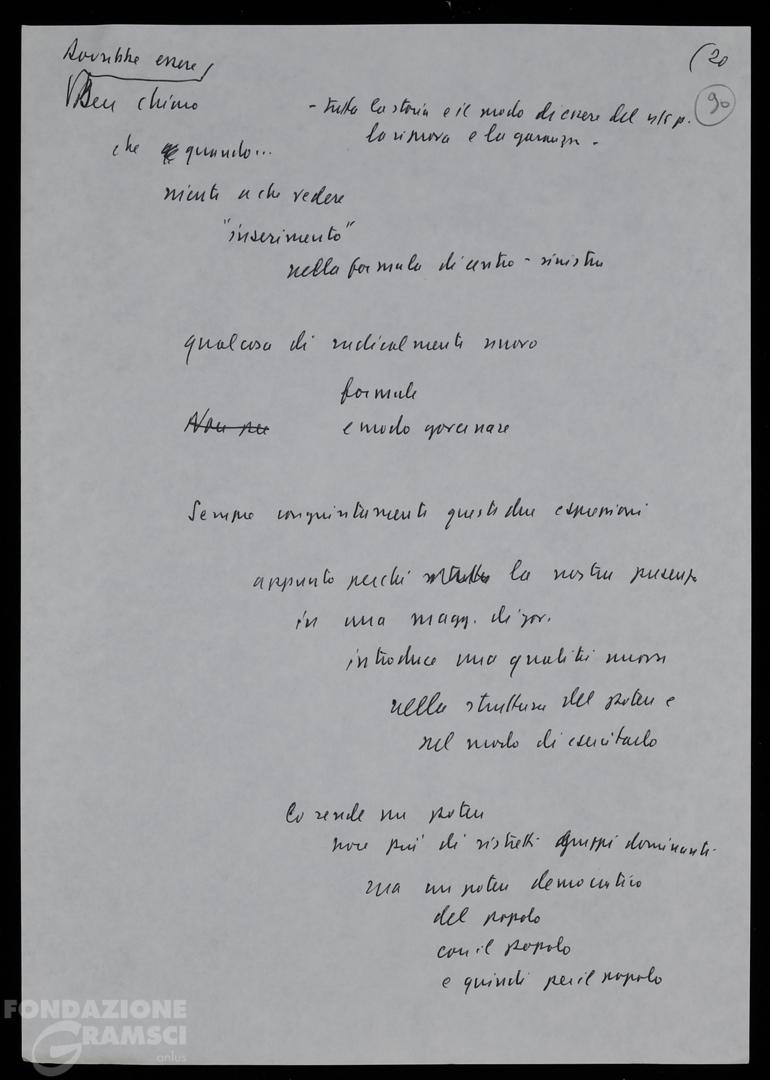 Dovrebbe essere
(20
Ben chiaro
90
- tutta la storia e il modo di essere del ns p.
la riprova e la garanzia -
che quando...
niente a che vedere
"inserimento"
nella formula di centro-sinistra
qualcosa di radicalmente nuovo
formule
Non per
e modo governare
Sempre congiuntamente queste due espressioni
appunto perché la nostra presenza
in una magg. di gov.
introduce una qualità nuova
nella struttura del potere e
nel modo di esercitarlo
Lo rende un potere
non più di ristretti gruppi dominanti
ma un potere democratico
del popolo
con il popolo
e quindi per il popolo
FONDAZIONE
GRAMSCI
onlus